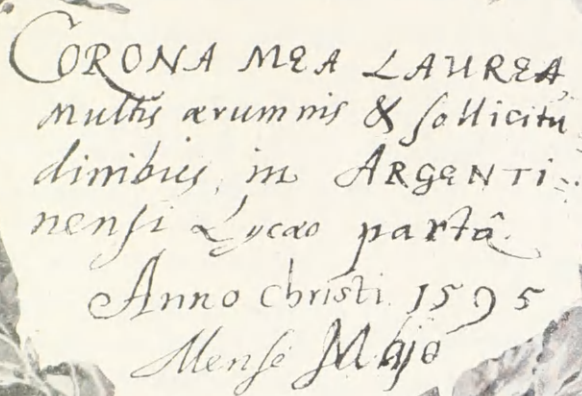 CORONA MEA LAUREA,
multis ærumnis & sollicitu
dinibus, in ARGENTI-
nensi Lycæo partâ.
Anno Christi. 1595
Mense Majo